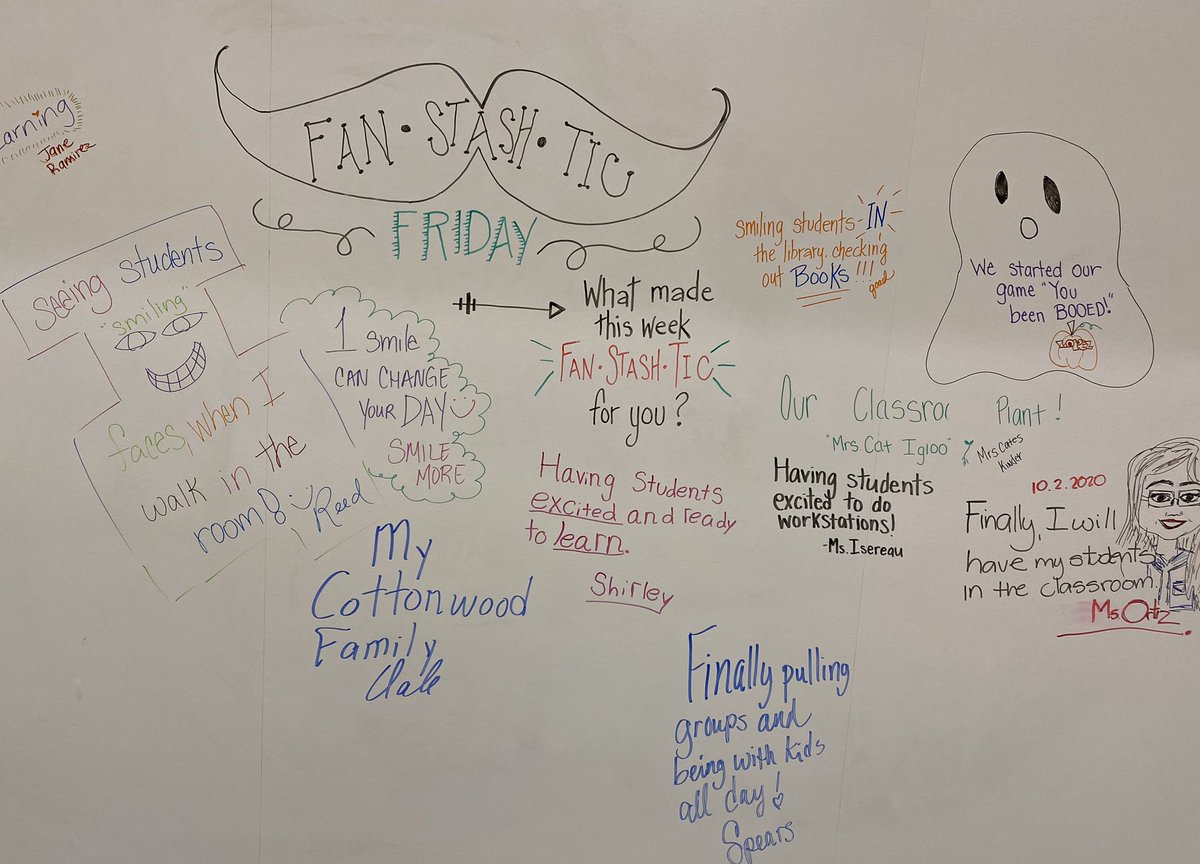 FAN·STASH·TIC
FRIDAY
What made
this week
FAN·STASH·TIC
for you?
arning
Jane
Ramirez
seeing students
"smiling"
faces, when I
walk in the
room
Reed
1 smile
CAN CHANGE
YOUR DAY
SMILE
MORE
My
Cottonwood
Family
Having Students
excited and ready
to learn.
Shirley
Smiling students IN
the library. checking
out BOOKS!!!
good
We started our
game "You
been BOOED!"
LOPEZ
Our Classroo Plant!
"Mrs. Cat Igloo"
Mrs Cates
Kinder
Having students
excited to do
workstations!
-Ms. Isereau
10.2.2020
Finally, I will
have my students
in the classroom.
Ms. Ortiz
Finally pulling
groups and
being with kids
all day!
Spears